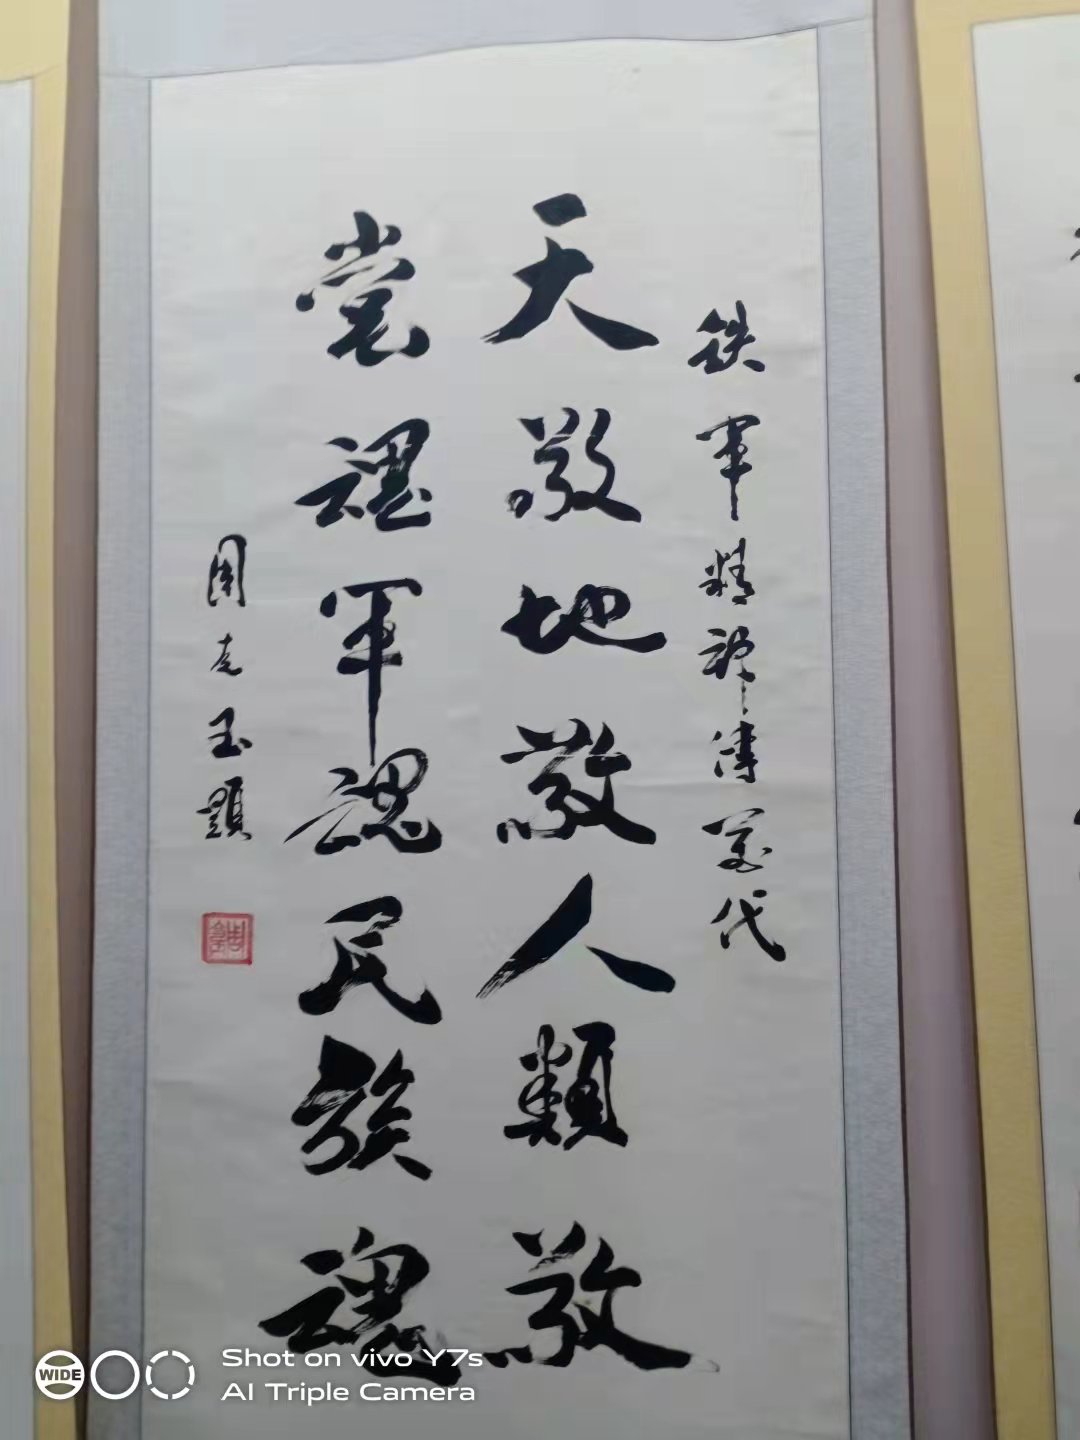 铁军精神傳萬代
天敬地敬人類敬
党魂軍魂民族魂
周克玉題
WIDE
Shot on vivo Y7s
AI Triple Camera